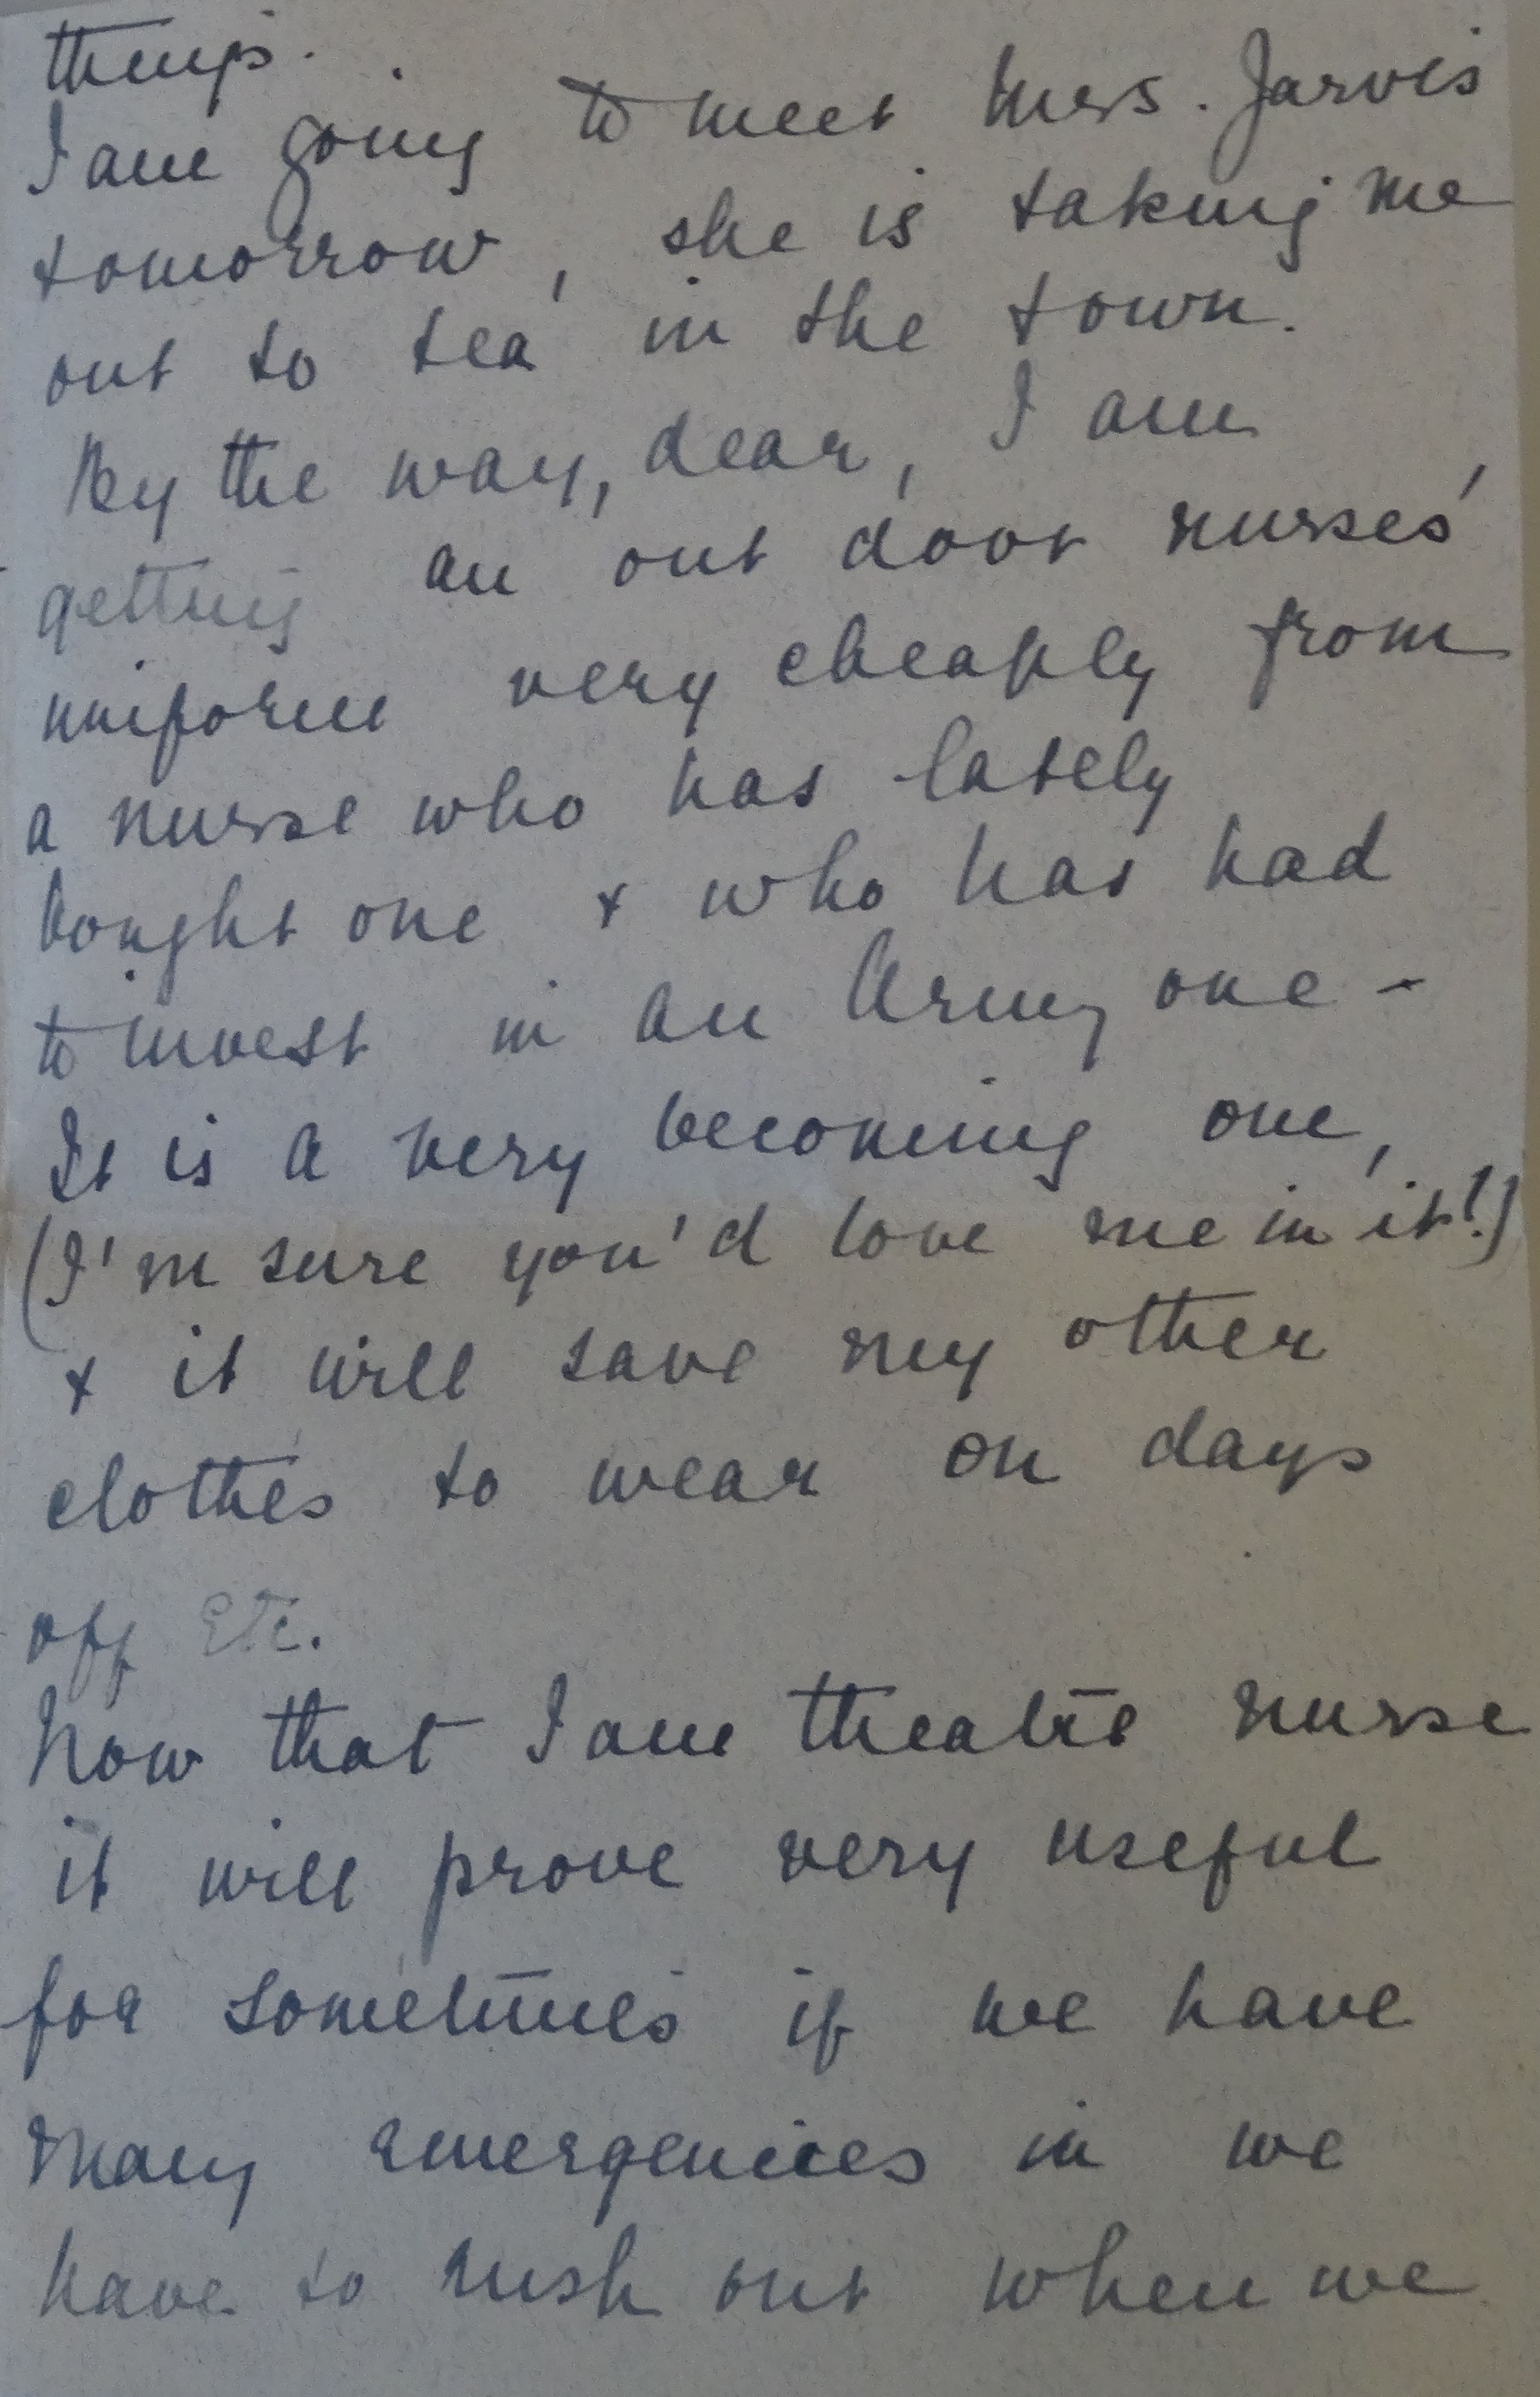 things.
I am going to meet Mrs. Jarvis
tomorrow, she is taking me
out to tea in the town.
By the way, dear, I am
getting an out door nurses'
uniform very cheaply from
a nurse who has lately
bought one & who has had
to invest in an Army one -
It is a very becoming one,
(I'm sure you'd love me in it!)
& it will save my other
clothes to wear on days
off etc.
Now that I am theatre nurse
it will prove very useful
for sometimes if we have
many emergencies in we
have to rush out when we